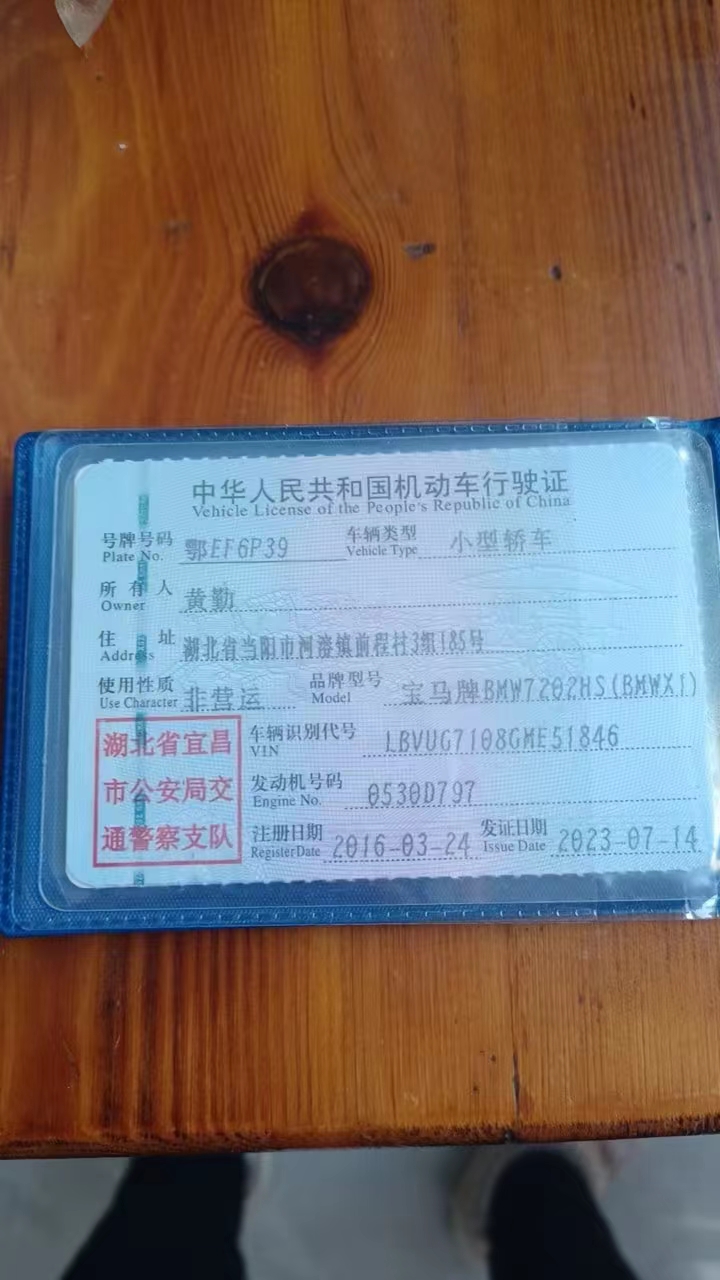 中华人民共和国机动车行驶证
Vehicle License of the People's Republic of China
号牌号码 鄂EF6P39 车辆类型 小型轿车
Plate No. Vehicle Type
所有人 黄勤
Owner
住址 湖北省当阳市河溶镇前程村3组185号
Address
使用性质 非营运 品牌型号 宝马牌BMW7202HS(BMWX1)
Use Character Model
湖北省宜昌
市公安局交
通警察支队
车辆识别代号 LBVUG7108GME51846
VIN
发动机号码 0530D797
Engine No.
注册日期 2016-03-24 发证日期 2023-07-14
Register Date Issue Date